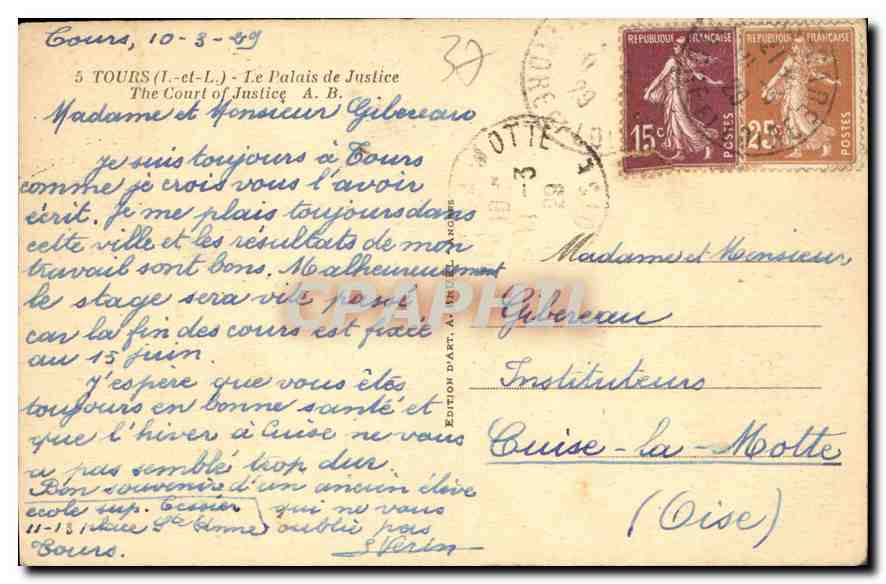 Tours, 10-3-29
37
5 TOURS (I.-et-L.) - Le Palais de Justice
The Court of Justice A. B.
Madame et Monsieur Gibereau
Je suis toujours à Tours
comme je crois vous l'avoir
écrit. Je me plais toujours dans
cette ville et les résultats de mon
travail sont bons. Malheureusement
le stage sera vite passé
car la fin des cours est fixée
au 15 juin.
J'espère que vous êtes
toujours en bonne santé et
que l'hiver à Cuise ne vous
a pas semblé trop dur.
Bon souvenir d'un ancien élève
qui ne vous
oublie pas
S Verin
école sup. Tessier
11-13 place Ste Anne
Tours.
EDITION D'ART, A.
REPUBLIQUE FRANÇAISE
15c
POSTES
REPUBLIQUE FRANÇAISE
25c
POSTES
MOTTE
-3
29
Madame et Monsieur
Gibereau
Instituteurs
Cuise-la-Motte
(Oise)
CPAPHIL